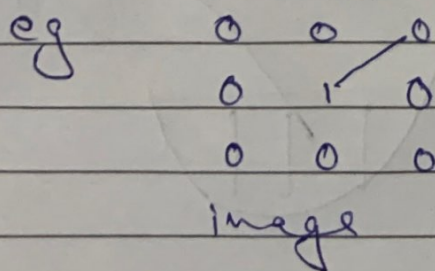 eg 0 0 0
0 1 0
0 0 0
image